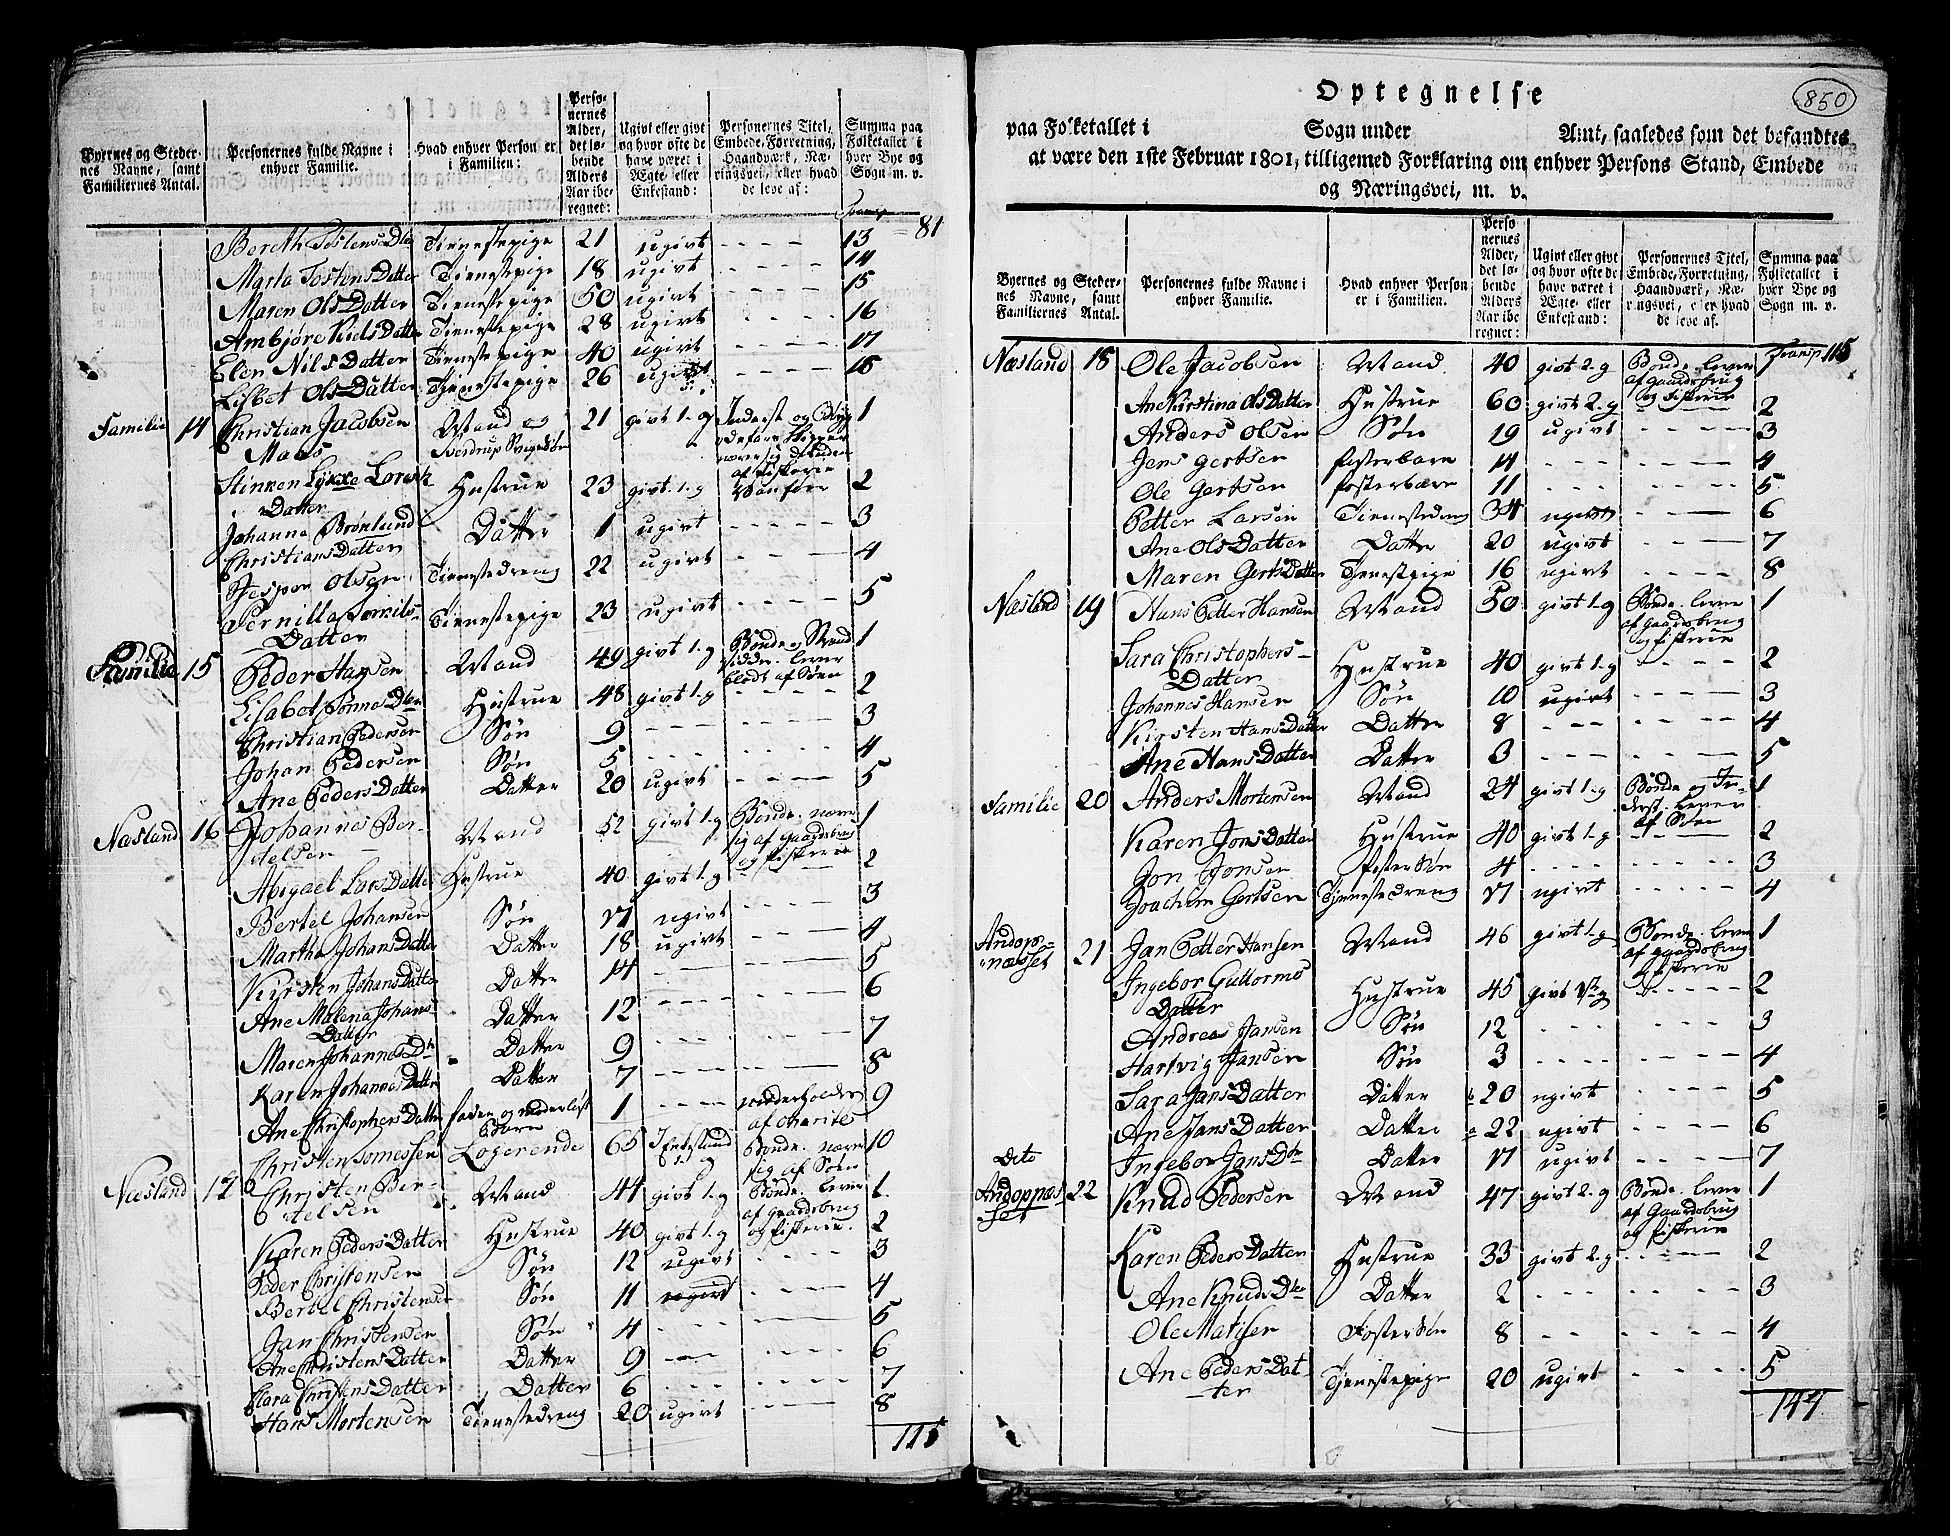 Byernes og Steder-
nes Navne, samt
Familiernes Antal.
Personernes fulde Navne i
enhver Familie.
Hvad enhver Person er
i Familien:
Perso-
nernes
Alder,
det lø-
bende
Alders
Aar ibe-
regnet:
Ugivt eller givt
og hvor ofte de
have været i
Ægte- eller
Enkestand:
Personernes Titel,
Embede, Forretning,
Haandværk, Næ-
ringsvei, eller hvad
de leve af:
Summa paa
Folketallet i
hver Bye og
Sogn m. v.
Transp 81
Tienestepige 21 ugivt 13
Marta Tostens Datter Tienestepige 18 ugivt 14
Maren Ols Datter Tienestepige 50 ugivt 15
Ambjöre Niels Datter Tienestepige 28 ugivt 16
Elen Nils Datter Tienestepige 40 ugivt 17
Lisbet Ols Datter Tjenestepige 26 ugivt 18
Familie 14 Christian Jacobsen Mand og 21 givt 1. g Inderst og 1
Hustrue 23 givt. 1. g 2
Datter
Johanna Brönlund Datter 1 ugivt 3
Christians Datter
Jespor Olsen Tienestedreng 22 ugivt 4
Pernilla Tienestepige 23 ugivt 5
Datter
Familie 15 Peder Hansen Mand 49 givt 1. g Bonde og Strand 1
sidder. lever
blodt af Söen
Lisabet Hustrue 48 givt 1. g 2
Christian Pedersen Sön 9 3
Johan Pedersen Sön 5 4
Ane Peders Datter Datter 20 ugivt 5
Næsland 16 Johannes Ber- Mand 52 givt 1. g Bonde. nærer 1
telsen sig af gaardsbrug
og fiskerie
Abigael Lars Datter Hustrue 40 givt 1. g 2
Bertel Johansen Sön 17 ugivt 3
Martha Johans Datter Datter 18 ugivt 4
Kirsten Johans Datter Datter 14 5
Ane Malena Johans Datter 12 6
Datter
Maren Johannes Dtr Datter 9 7
Karen Johannes Datter Datter 7 8
Ane Christophers Datter fader og moderlöst 1 underholdes 9
Barn af Charites
Christen Tomessen Logerende 65 1. g Bonde. nærer 10
sig af Söen
Næsland 17 Christen Ber- Mand 44 givt 1. g Bonde. lever 1
telsen af gaardsbrug
og fiskerie.
Karen Peders Datter Hustrue 40 givt 1. g 2
Peder Christensen Sön 12 ugivt 3
Bertel Christensen Sön 11 ugivt 4
Jan Christensen Sön 4 5
Ane Christens Datter Datter 9 6
Clara Christens Datter Datter 6 7
Hans Mortensen Tienestedreng 20 ugivt 8
115
850
Optegnelse
paa Folketallet i Sogn under Amt, saaledes som det befandtes
at være den 1ste Februar 1801, tilligemed Forklaring om enhver Persons Stand, Embede
og Næringsvei, m. v.
Byernes og Steder-
nes Navne, samt
Familiernes Antal.
Personernes fulde Navne i
enhver Familie.
Hvad enhver Person
er i Familien.
Perso-
nernes
Alder,
det lø-
bende
Alders
Aar ibe-
regnet:
Ugivt eller givt
og hvor ofte de
have været i
Ægte- eller
Enkestand:
Personernes Titel,
Embede, Forretning,
Haandværk, Næ-
ringsvei, eller hvad
de leve af.
Summa paa
Folketallet i
hver Bye og
Sogn m. v.
Transp 115
Næsland 18 Ole Jacobsen Mand 40 givt 2. g Bonde. lever 1
af gaardsbrug
og fiskerie
Ane Kirstina Ols Datter Hustrue 60 givt 2. g 2
Anders Olsen Sön 19 ugivt 3
Jens Gertsen fosterbarn 14 4
Ole Gertsen fosterbarn 11 5
Petter Larsen Tienestedreng 34 ugivt 6
Ane Ols Datter Datter 20 ugivt 7
Maren Gerts Datter Tjenestepige 16 ugivt 8
Næsland 19 Hans Petter Hansen Mand 50 givt 1. g Bonde. lever 1
af gaardsbrug
og fiskerie
Sara Christophers- Hustrue 40 givt 1. g 2
Datter
Johannes Hansen Sön 10 ugivt 3
Kirsten Hans Datter Datter 8 4
Ane Hans Datter Datter 3 5
Familie 20 Anders Mortensen Mand 24 givt 1. g Bonde og In- 1
derst. lever
af Söen
Karen Jons Datter Hustrue 40 givt 1. g 2
Jon Jonsen foster Sön 4 3
Joachim Gertsen Tjenestedreng 17 ugivt 4
Andops- 21 Jan Petter Hansen Mand 46 givt 1. g Bonde. lever 1
næsset af gaardsbrug
og fiskerie
Ingebor Guttorms Hustrue 45 givt 2
Datter
Andreas Jansen Sön 12 3
Hartvig Jansen Sön 3 4
Sara Jans Datter Datter 20 ugivt 5
Ane Jans Datter Datter 22 ugivt 6
Dito Ingebor Jans Dtr Datter 17 ugivt 7
Andopnæs 22 Knud Pedersen Mand 47 givt 2. g Bonde. lever 1
set af Gaardsbrug
og fiskerie
Karen Peders Datter Hustrue 33 givt 2. g 2
Ane Knuds Dtr Datter 2 3
Ole Matisen Fostersön 8 4
Ane Peders Dat- Tjenestepige 20 ugivt 5
ter
144